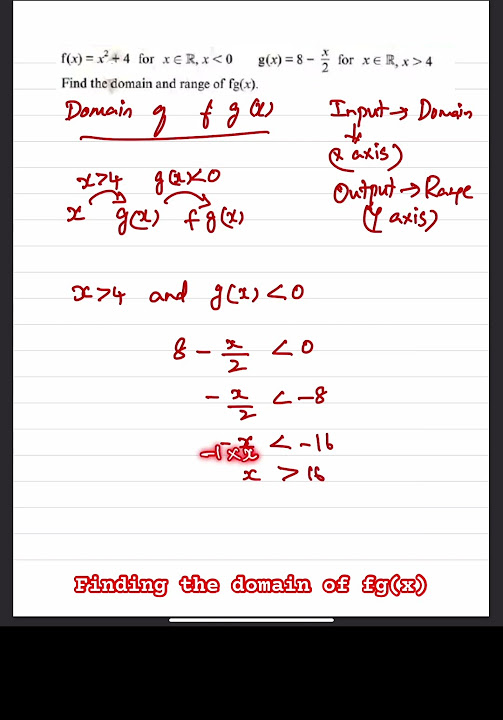 f(x) = x² + 4 for x ∈ ℝ, x < 0 g(x) = 8 − x/2 for x ∈ ℝ, x > 4
Find the domain and range of fg(x).
Domain g f g (x)
Input → Domain
(x axis)
x>4 g(x)<0
Output → Range
x g(x) f g(x)
(y axis)
x>4 and g(x) <0
8 − x/2 < 0
− x/2 < −8
−x < −16
−1 × x
x > 16
Finding the domain of fg(x)